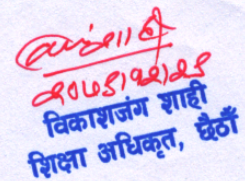 २०७५।१२।२५
विकाशजंग शाही
शिक्षा अधिकृत, छैठौँ